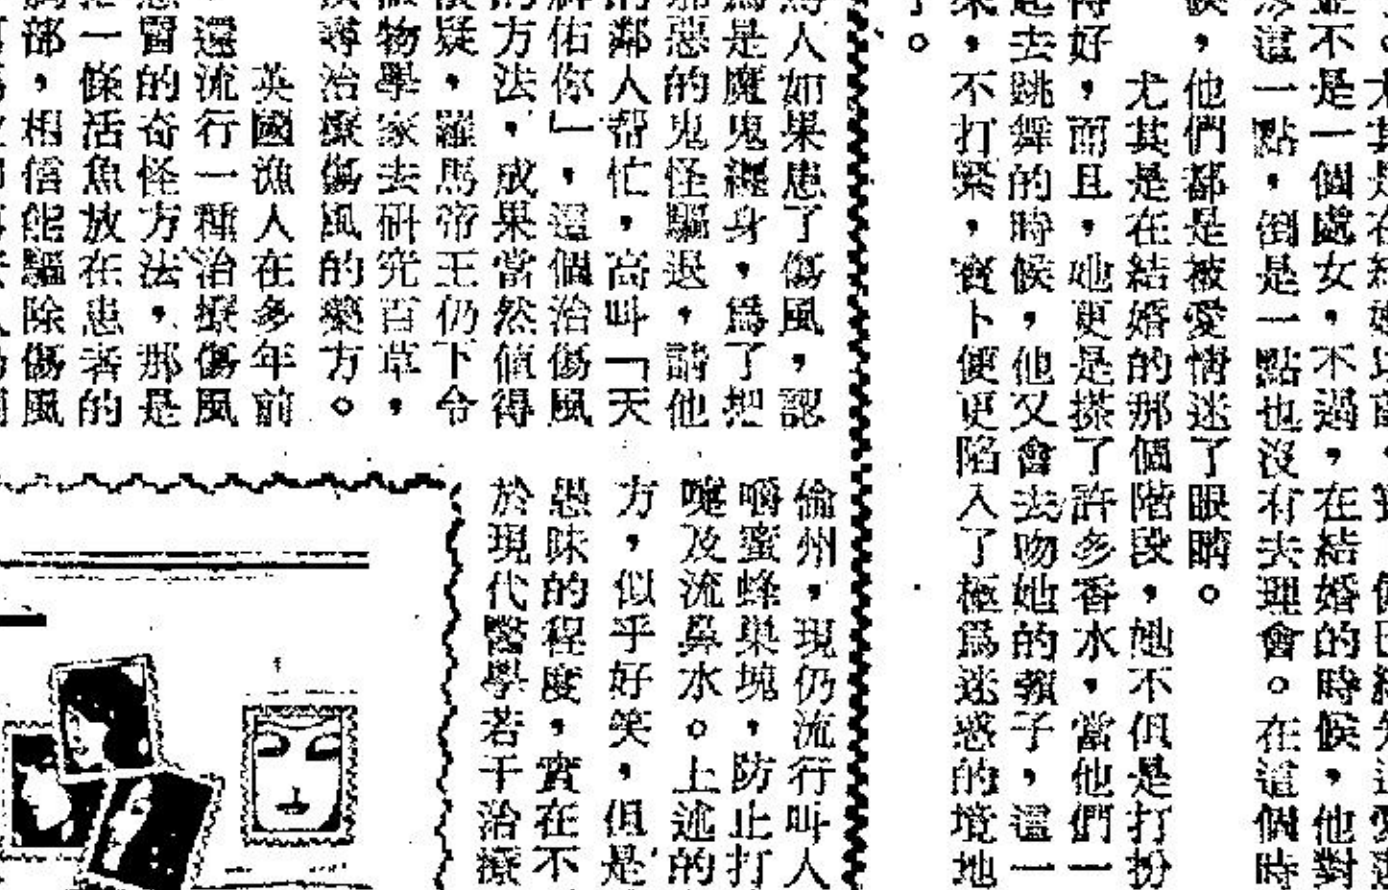 並不是一個處女，不過，在結婚的時候，他對
這一點，倒是一點也沒有去理會。在這個時
候，他們都是被愛情迷了眼睛。
尤其是在結婚的那個階段，她不但是打扮
得好，而且，她更是搽了許多香水，當他們一
起去跳舞的時候，他又會去吻她的頸子，這一
來，不打緊，賓卜便更陷入了極爲迷惑的境地
了。
馬人如果患了傷風，認
爲是魔鬼纏身，爲了把
邪惡的鬼怪驅退，請他
的鄰人幫忙，高叫「天
神佑你」，這個治傷風
的方法，成果當然值得
懷疑，羅馬帝王仍下令
植物學家去研究百草，
尋治療傷風的藥方。
英國漁人在多年前
還流行一種治療傷風
冒的奇怪方法，那是
一條活魚放在患者的
部，相信能驅除傷風
倫州，現仍流行叫人
嚼蜜蜂巢塊，防止打
嚏及流鼻水。上述的
方，似乎好笑，但是
愚昧的程度，實在不
於現代醫學若干治療